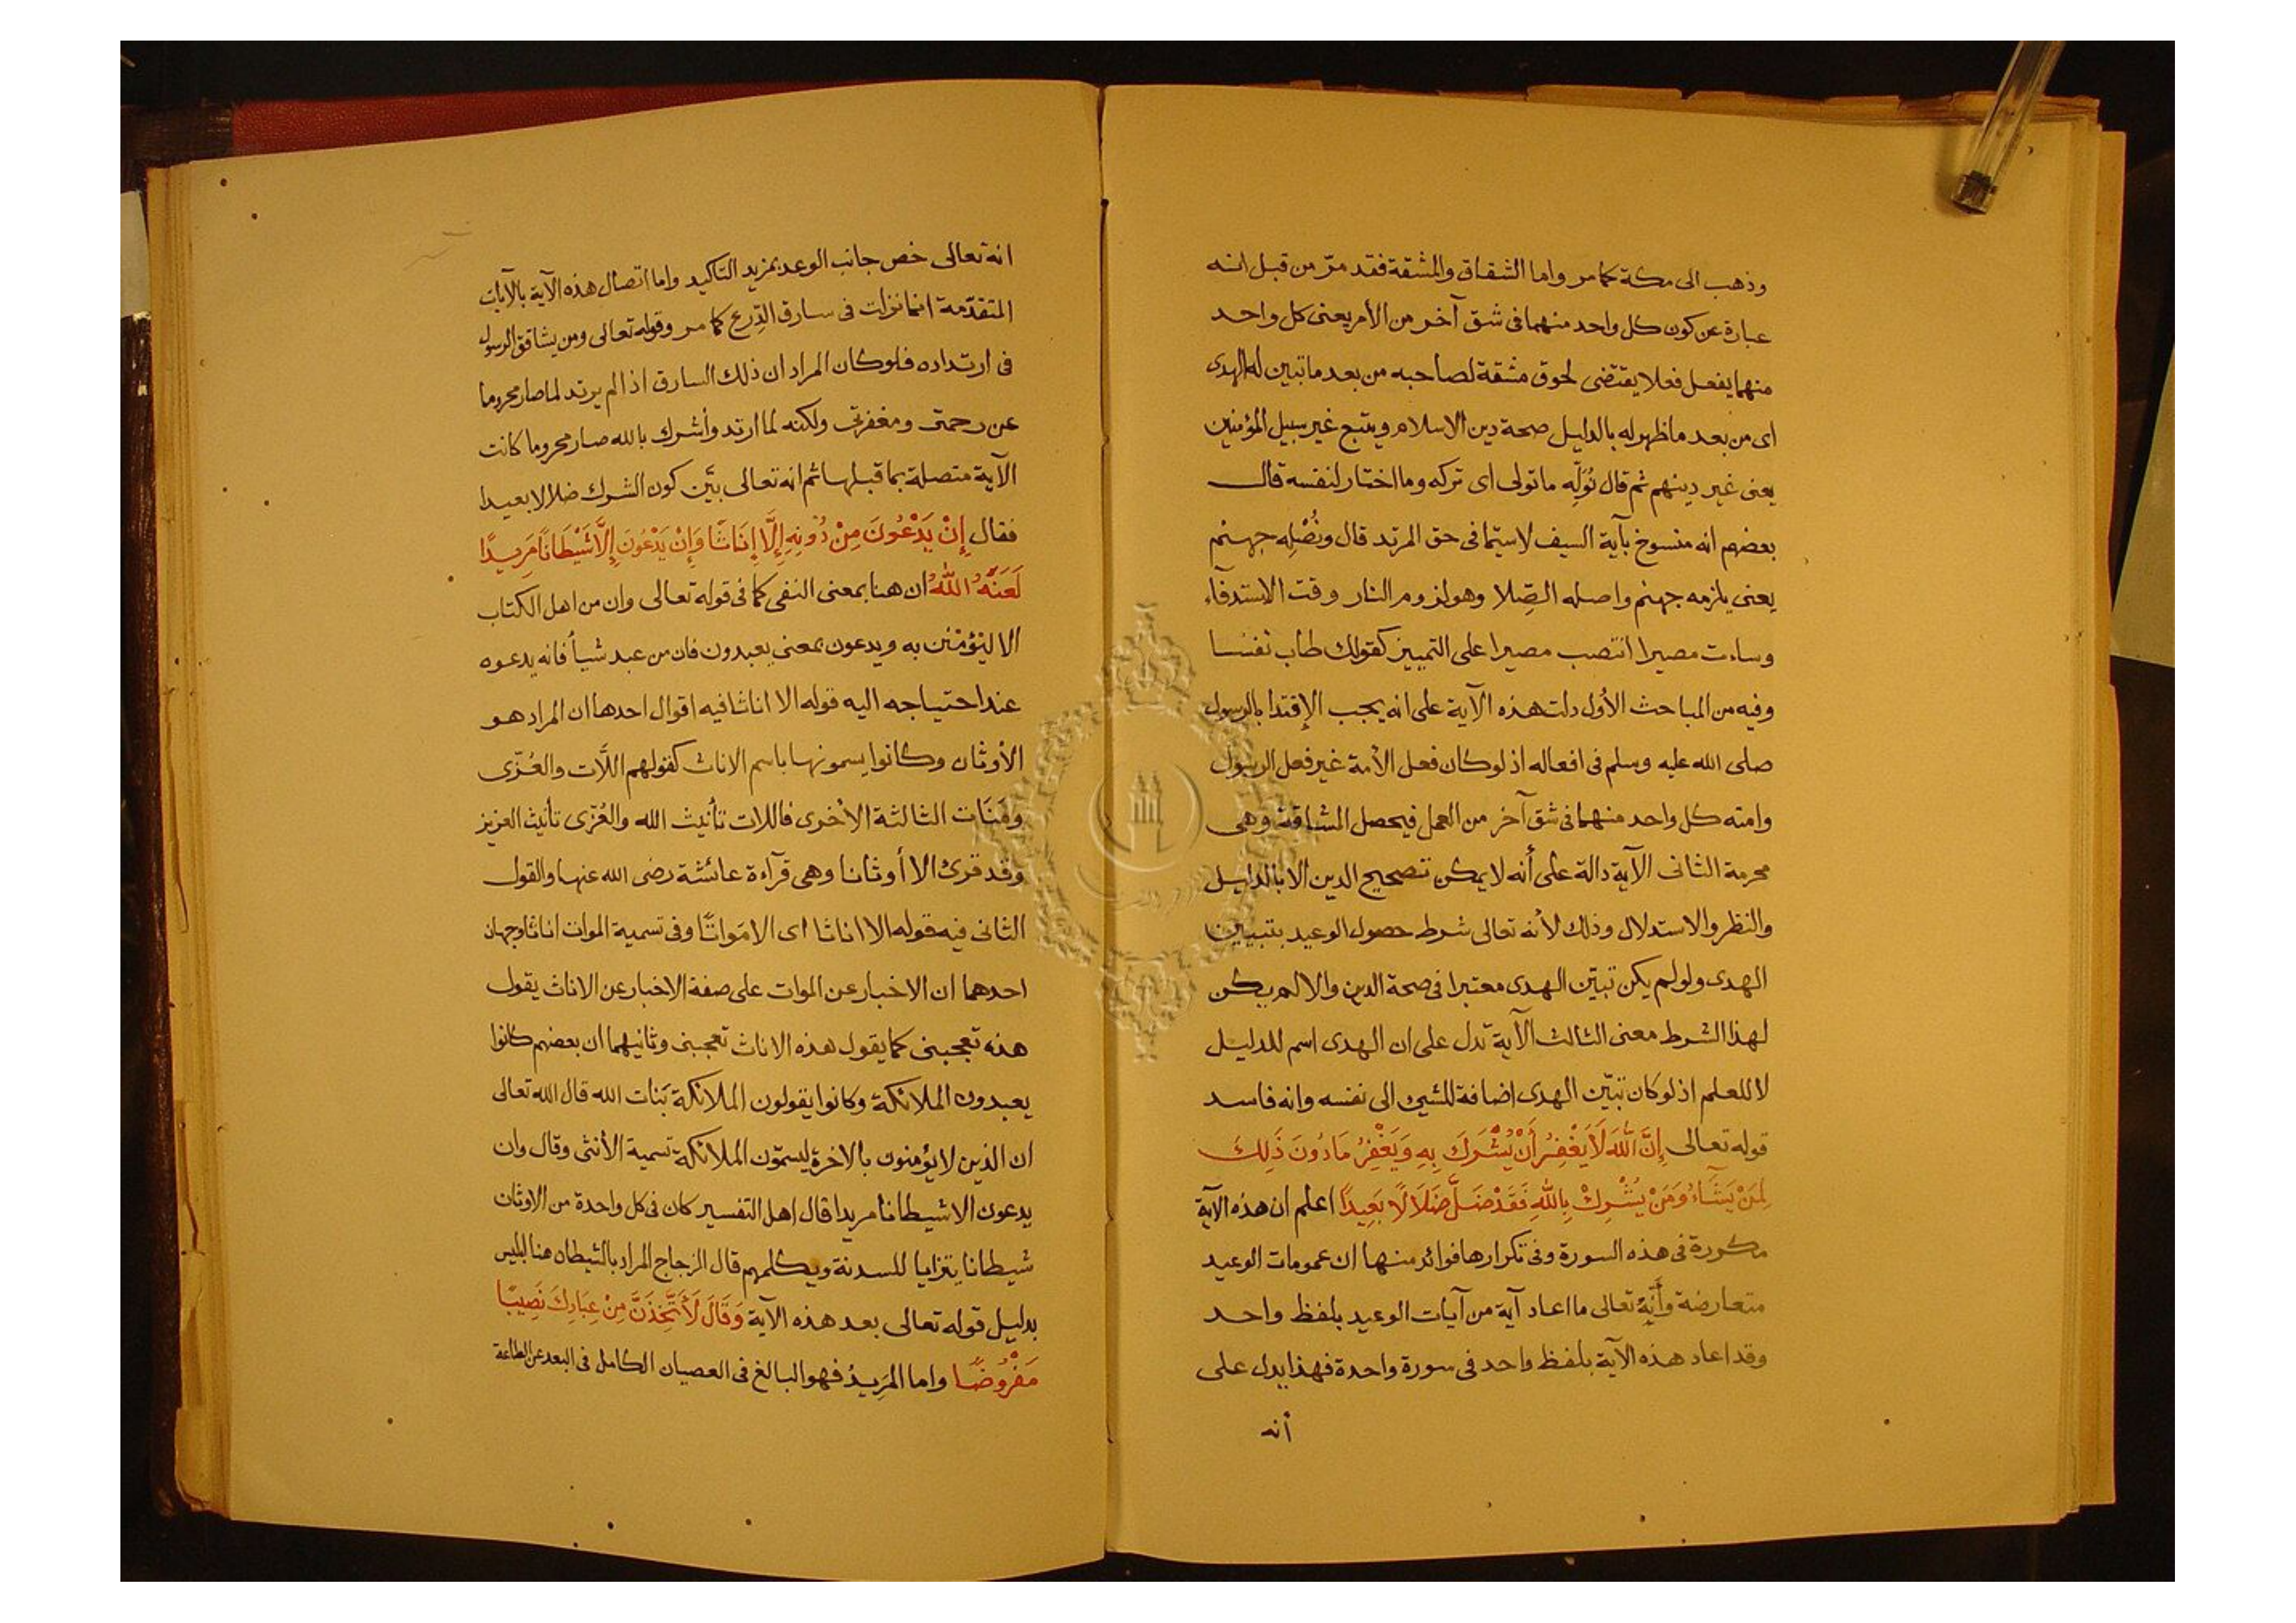 وذهب الى مكة كما مر واما الشقاق والمشقة فقد مرّ من قبل انه
عبارة عن كون كل واحد منهما فى شق آخر من الأمر يعنى كل واحد
منهما يفعل فعلا يقتضى لحوق مشقة لصاحبه من بعد ما تبين له الهدى
اى من بعد ما ظهر له بالدليل صحة دين الاسلام ويتبع غير سبيل المؤمنين
يعنى غير دينهم ثم قال نُوَلِّه ماتولى اى تركه وما اختار لنفسه قال
بعضهم انه منسوخ بآية السيف لاسيّما فى حق المرتد قال ونُصْلِه جهنم
يعنى يلزمه جهنم واصله الصِّلا وهو لزوم النار وقت الاستدفآء
وساءت مصيرا انتصب مصيرا على التمييز كقولك طاب نفسا
وفيه من المباحث الأول دلت هذه الآية على انه يجب الإقتدا بالرسول
صلى الله عليه وسلم فى افعاله اذ لو كان فعل الأمة غير فعل الرسول
وامته كل واحد منهما فى شق آخر من العمل فيحصل المشاقة وهى
محرمة الثانى الآية دالة على أنه لا يمكن تصحيح الدين الا بالدليل
والنظر والاستدلال وذلك لأنه تعالى شرط حصول الوعيد بتبيين
الهدى ولو لم يكن تبيّن الهدى معتبرا فى صحة الدين والا لم يكن
لهذا الشرط معنى الثالث الآية تدل على ان الهدى اسم للدليل
لا للعلم اذ لو كان تبيّن الهدى اضافة للشيئ الى نفسه وانه فاسد
قوله تعالى إِنَّ اللَّهَ لَا يَغْفِرُ أَنْ يُشْرَكَ بِهِ وَيَغْفِرُ مَا دُونَ ذَلِكَ
لِمَنْ يَشَآءُ وَمَنْ يُشْرِكْ بِاللَّهِ فَقَدْ ضَلَّ ضَلَالًا بَعِيدًا اعلم ان هذه الآية
مكررة فى هذه السورة وفى تكرارها فوائد منها ان عمومات الوعيد
متعارضة وأَنَّهُ تعالى ما اعاد آية من آيات الوعيد بلفظ واحد
وقد اعاد هذه الآية بلفظ واحد فى سورة واحدة فهذا يدل على
أنه
انه تعالى خص جانب الوعد بمزيد التاكيد واما اتصال هذه الآية بالآيات
المتقدّمة انما نزلت فى سارق الدِّرع كما مر وقوله تعالى ومن يشاقق الرسول
فى ارتداده فلو كان المراد ان ذلك السارق اذا لم يرتد لما صار محروما
عن رحمتى ومغفرتى ولكنه لما ارتد وأشرك بالله صار محروما كانت
الآية متصلة بما قبلها ثم انه تعالى بيَّن كون الشرك ضلالا بعيدا
فقال إِنْ يَدْعُونَ مِنْ دُونِهِ إِلَّا إِنَاثًا وَإِنْ يَدْعُونَ إِلَّا شَيْطَانًا مَرِيدًا
لَعَنَهُ اللَّهُ ان هنا بمعنى النفى كما فى قوله تعالى وان من اهل الكتاب
الا ليُؤمنن به ويدعون بمعنى يعبدون فان من عبد شيأ فانه يدعوه
عند احتياجه اليه قوله الا اناثا فيه اقوال احدها ان المراد هو
الأوثان وكانوا يسمونها باسم الاناث كقولهم اللَّات والعُزّى
ومَنَات الثالثة الأخرى فاللات تأنيث الله والعُزّى تأنيث العزيز
وقد قرئ الا أوثانا وهى قرآءة عائشة رضى الله عنها والقول
الثانى فيه قوله الا اناثا اى الا مَواتًا وفى تسمية الموات اناثا وجهان
احدهما ان الاخبار عن الموات على صفة الاخبار عن الاناث يقول
هذه تعجبنى كما يقول هذه الاناث تعجبنى وثانيهما ان بعضهم كانوا
يعبدون الملائكة وكانوا يقولون الملائكة بَنات الله قال الله تعالى
ان الذين لا يؤمنون بالاخرة ليسمّون الملائكة تسمية الأنثى وقال وان
يدعون الا شيطانا مريدا قال اهل التفسير كان فى كل واحدة من الاوثان
شيطانا يتزايا للسدنة ويكلمهم قال الزجاج المراد بالشيطان هنا ابليس
بدليل قوله تعالى بعد هذه الآية وَقَالَ لَأَتَّخِذَنَّ مِنْ عِبَادِكَ نَصِيبًا
مَفْرُوضًا واما المَرِيدُ فهو البالغ فى العصيان الكامل فى البعد عن الطاعة